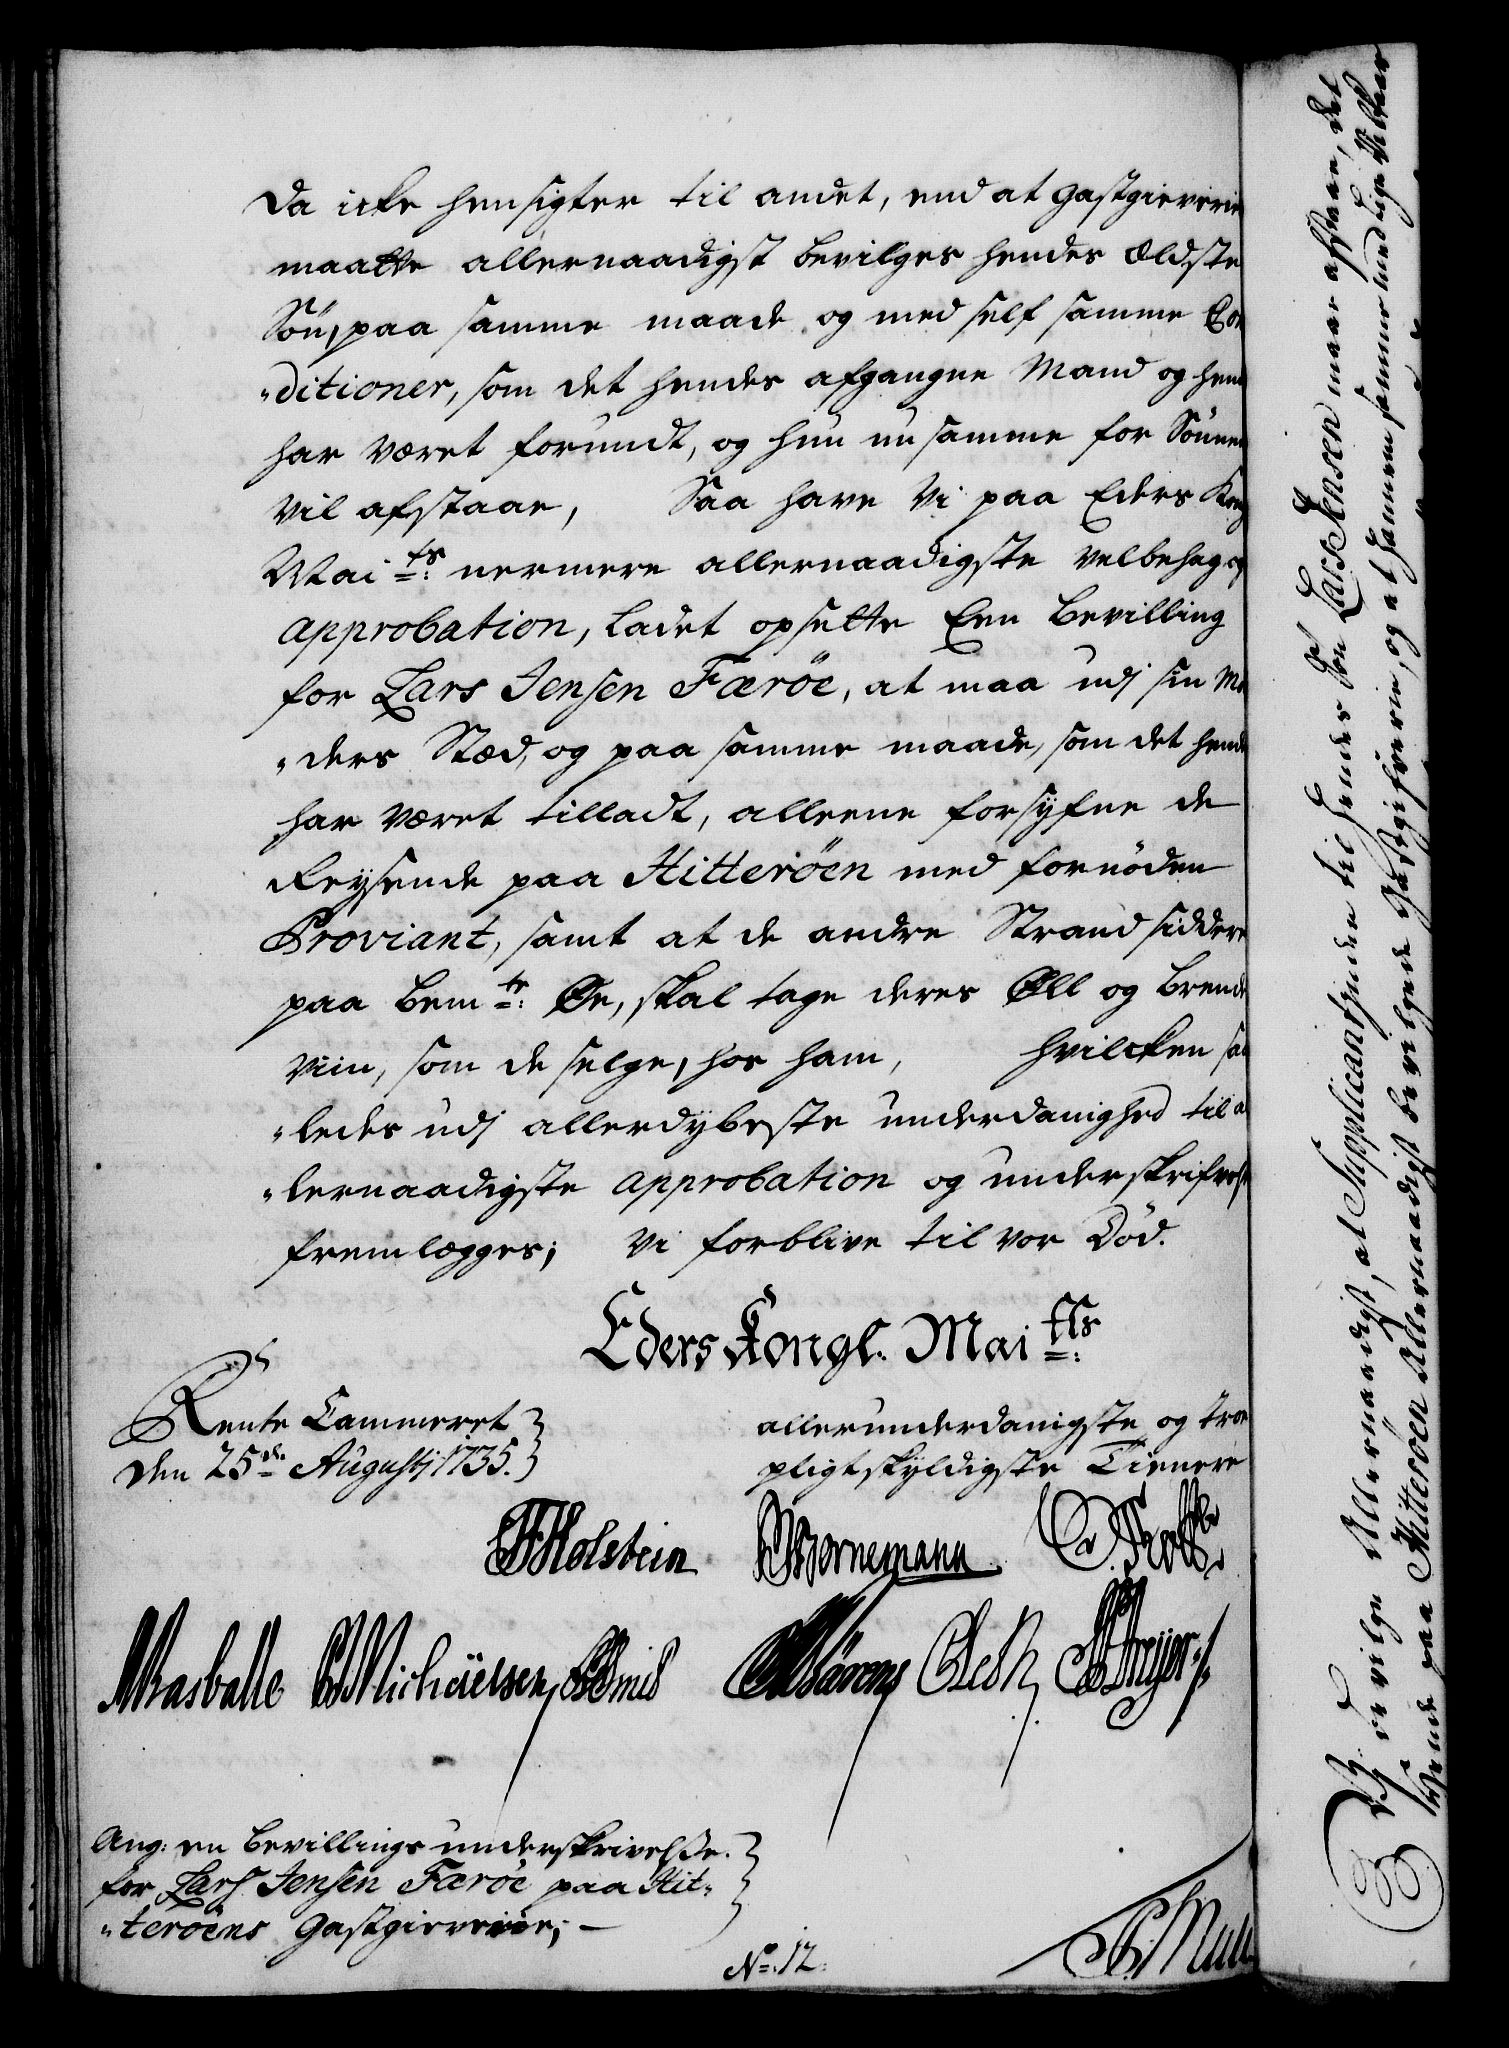 da icke hensigter til andet, end at gastgieverie
maatte allernaadigst bevilges hendes Ældste
Sön, paa samme maade og med self samme Con
„ditioner, som det hendes afgangne Mand og hende
har været forundt, og hun nu samme for Sönnen
vil afstaae, Saa have Vi paa Eders Kong
Mai ts: nermere allernaadigste velbehag og
approbation, ladet opsette Een bevilling
for Lars Jensen Færöe, at maa udj sin Mo
„ders Stæd, og paa samme maade, som det hende
har været tilladt, alleene forsyfne de
Reysende paa Hitteröen med fornöden
Proviant, samt at de andre Strand siddere
paa bem te: Öe, skal tage deres Öll og brende
viin, som de selge, hos ham, hvilcken saa
„ledes udj allerdybeste underdanighed til al
„lernaadigste approbation og underskrifvelse
fremlægges; Vi forblive til vor Död.
Eders Kongl. Mai tts:
Rente Cammeret
den 25de Augustj 1735.
allerunderdanigste og troe
pligtskyldigste Tienere
Holstein Bornemann
Rasballe Michäelsen Smid
Ang: en bevillings underskrivelse
for Lars Jensen Færöe paa Hit„
„teröens Gastgieverie; —
No: 12.
Bevilge Allernaadigst, at Supplicantinden til hendes Sön Lars Jensen maae afstaae, det
hende paa Hitteröen Allernaadigst bevilgede Gastgifverie, og at hannem samme med lige Vilkaar